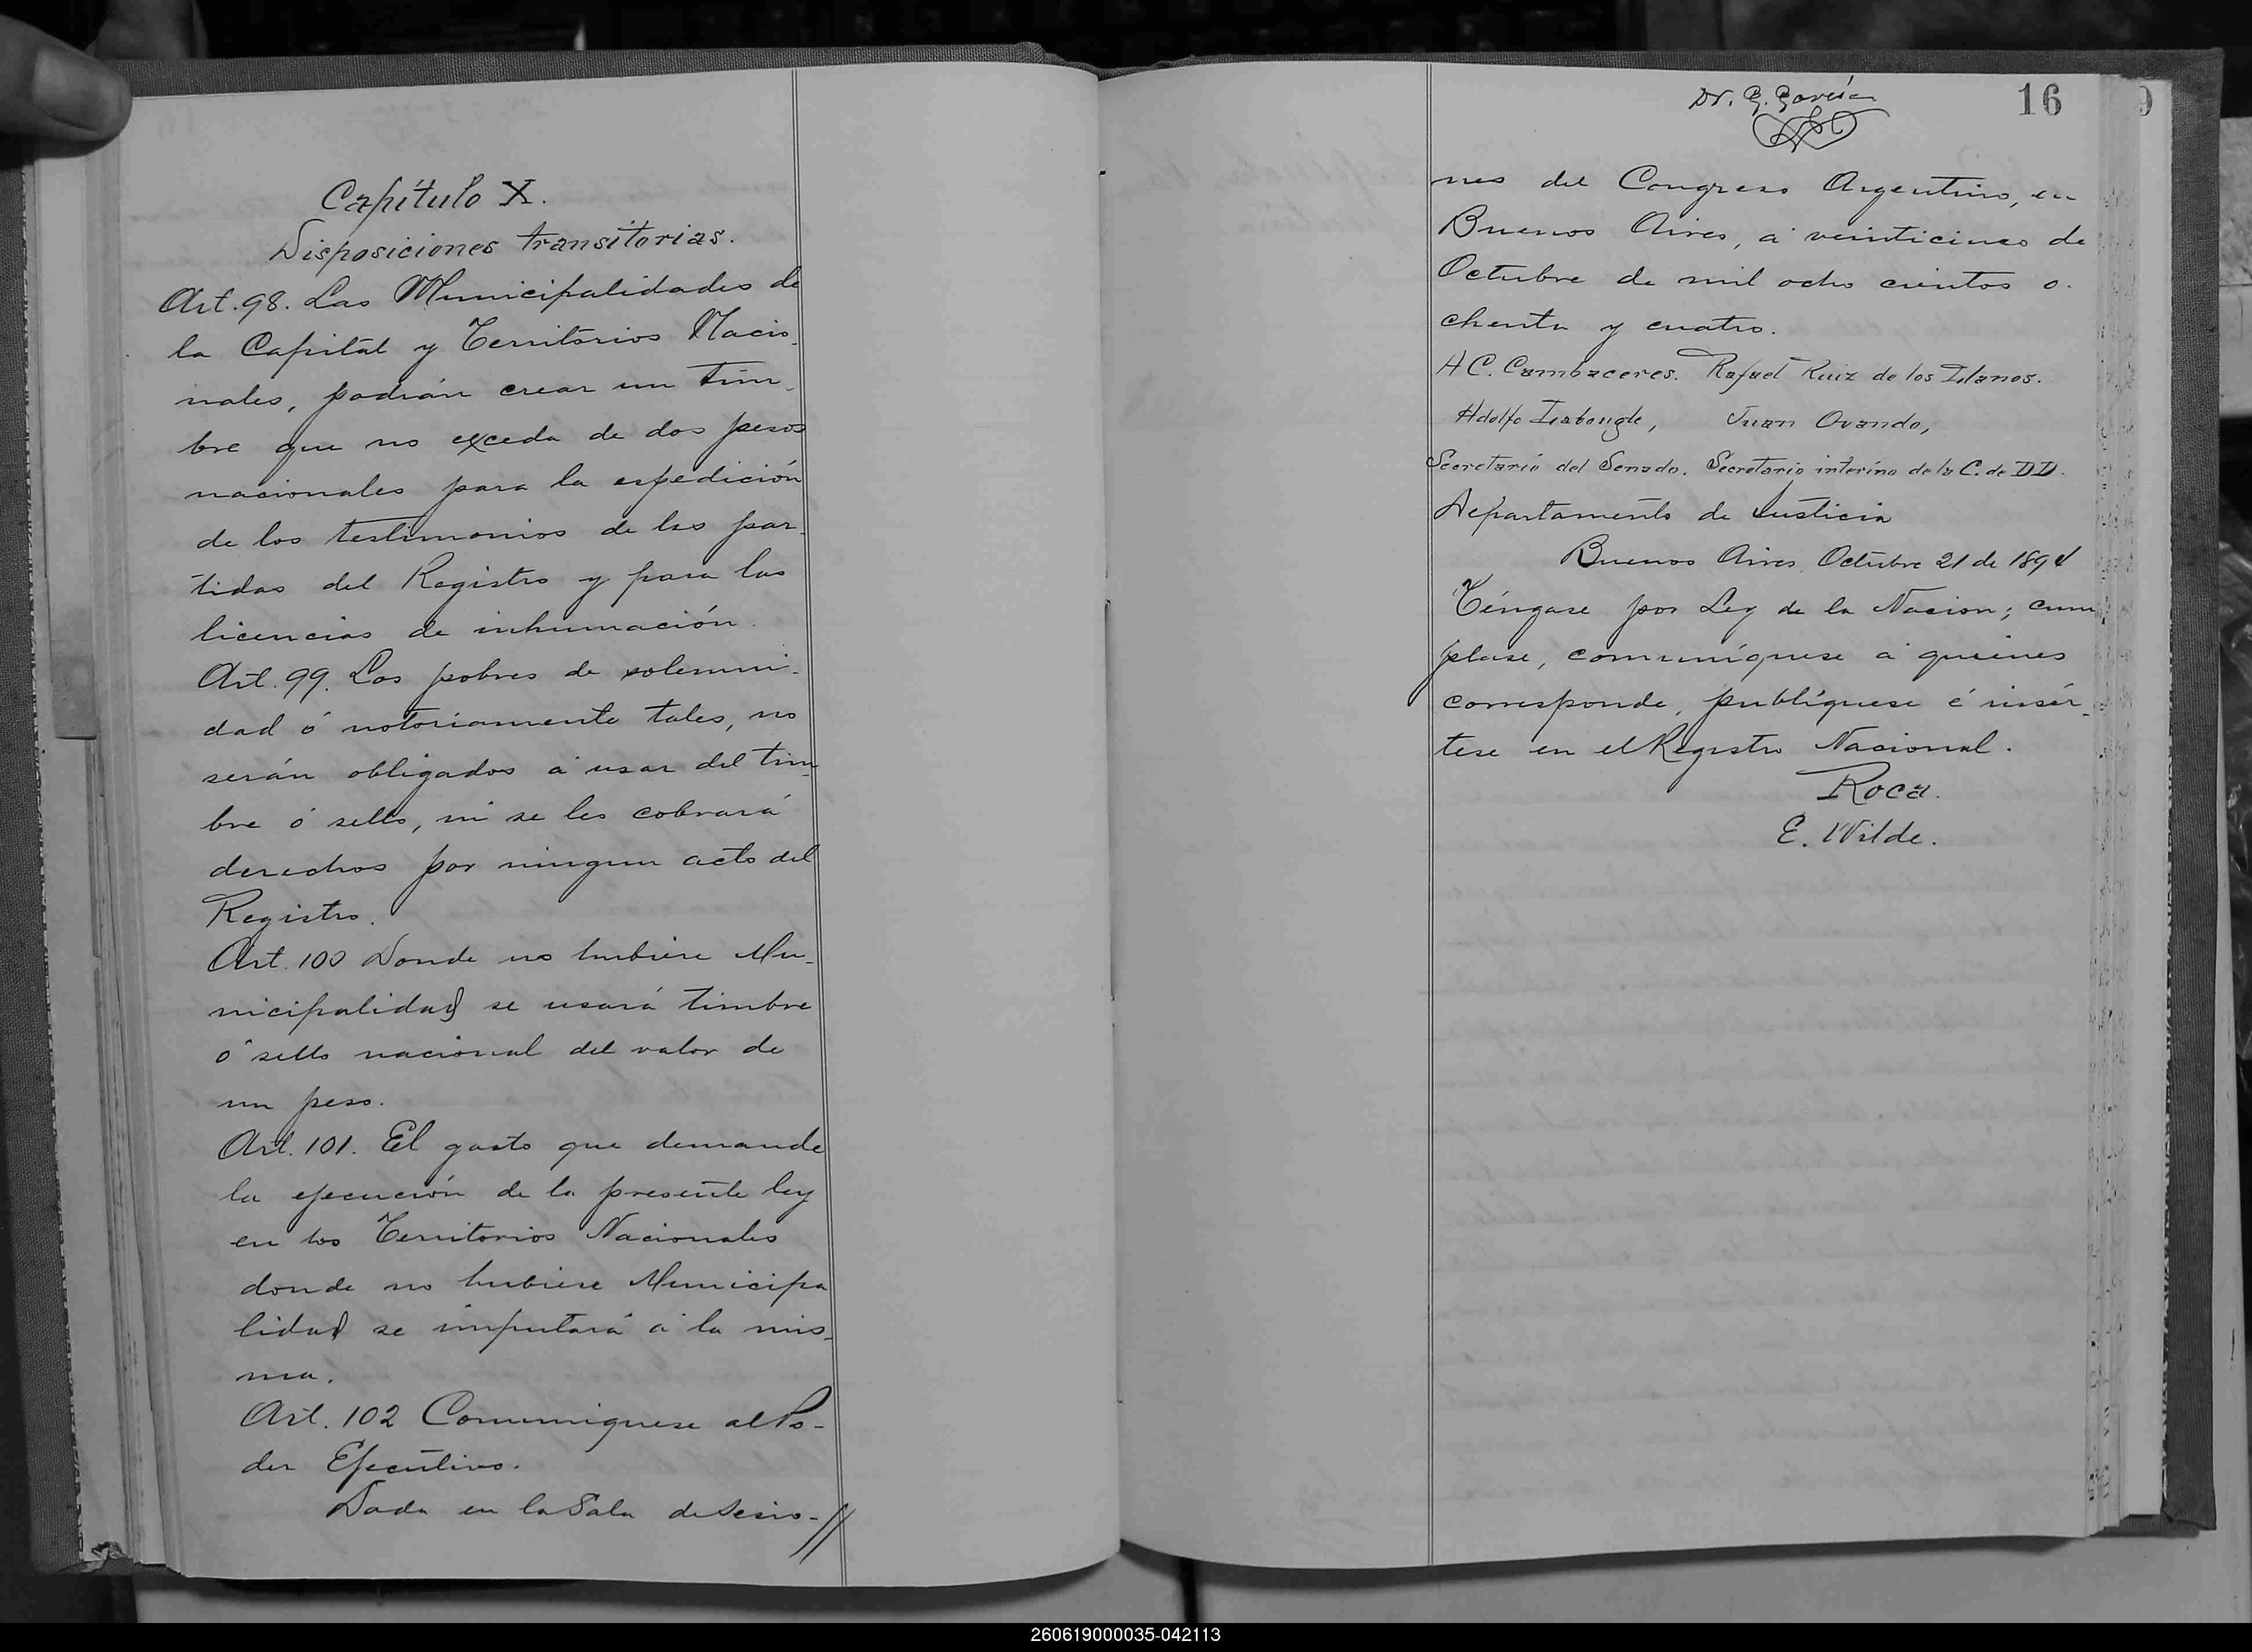 Capítulo X.
Disposiciones transitorias.
Art. 98. Las Municipalidades de
la Capital y Territorios Nacio-
nales, podrán crear un tim-
bre que no exceda de dos pesos
nacionales para la espedición
de los testimonios de las par-
tidas del Registro y para las
licencias de inhumación.
Art. 99. Los pobres de solemni-
dad ó notoriamente tales, no
serán obligados á usar del tim-
bre ó sello, ni se les cobrará
derechos por ningun acto del
Registro.
Art. 100 Donde no hubiere Mu-
nicipalidad se usará timbre
ó sello nacional del valor de
un peso.
Art. 101. El gasto que demande
la ejecución de la presente ley
en los Territorios Nacionales
donde no hubiere Municipa
lidad se imputará á la mis-
ma.
Art. 102 Comuniquese al Po-
der Ejecutivo.
Dada en la Sala de Sesio-//
Dr. G. García
16
nes del Congreso Argentino, en
Buenos Aires, á veinticinco de
Octubre de mil ocho cientos o-
chenta y cuatro.
A C. Cambaceres. Rafael Ruiz de los Llanos.
Adolfo Labougle, Juan Ovando,
Secretario del Senado. Secretario interino de la C. de DD.
Departamento de Justicia
Buenos Aires, Octubre 21 de 1894
Téngase por Ley de la Nacion; cum
plase, comuníquese á quienes
corresponde, publíquese é insér-
tese en el Registro Nacional.
Roca.
E. Wilde.
260619000035-042113